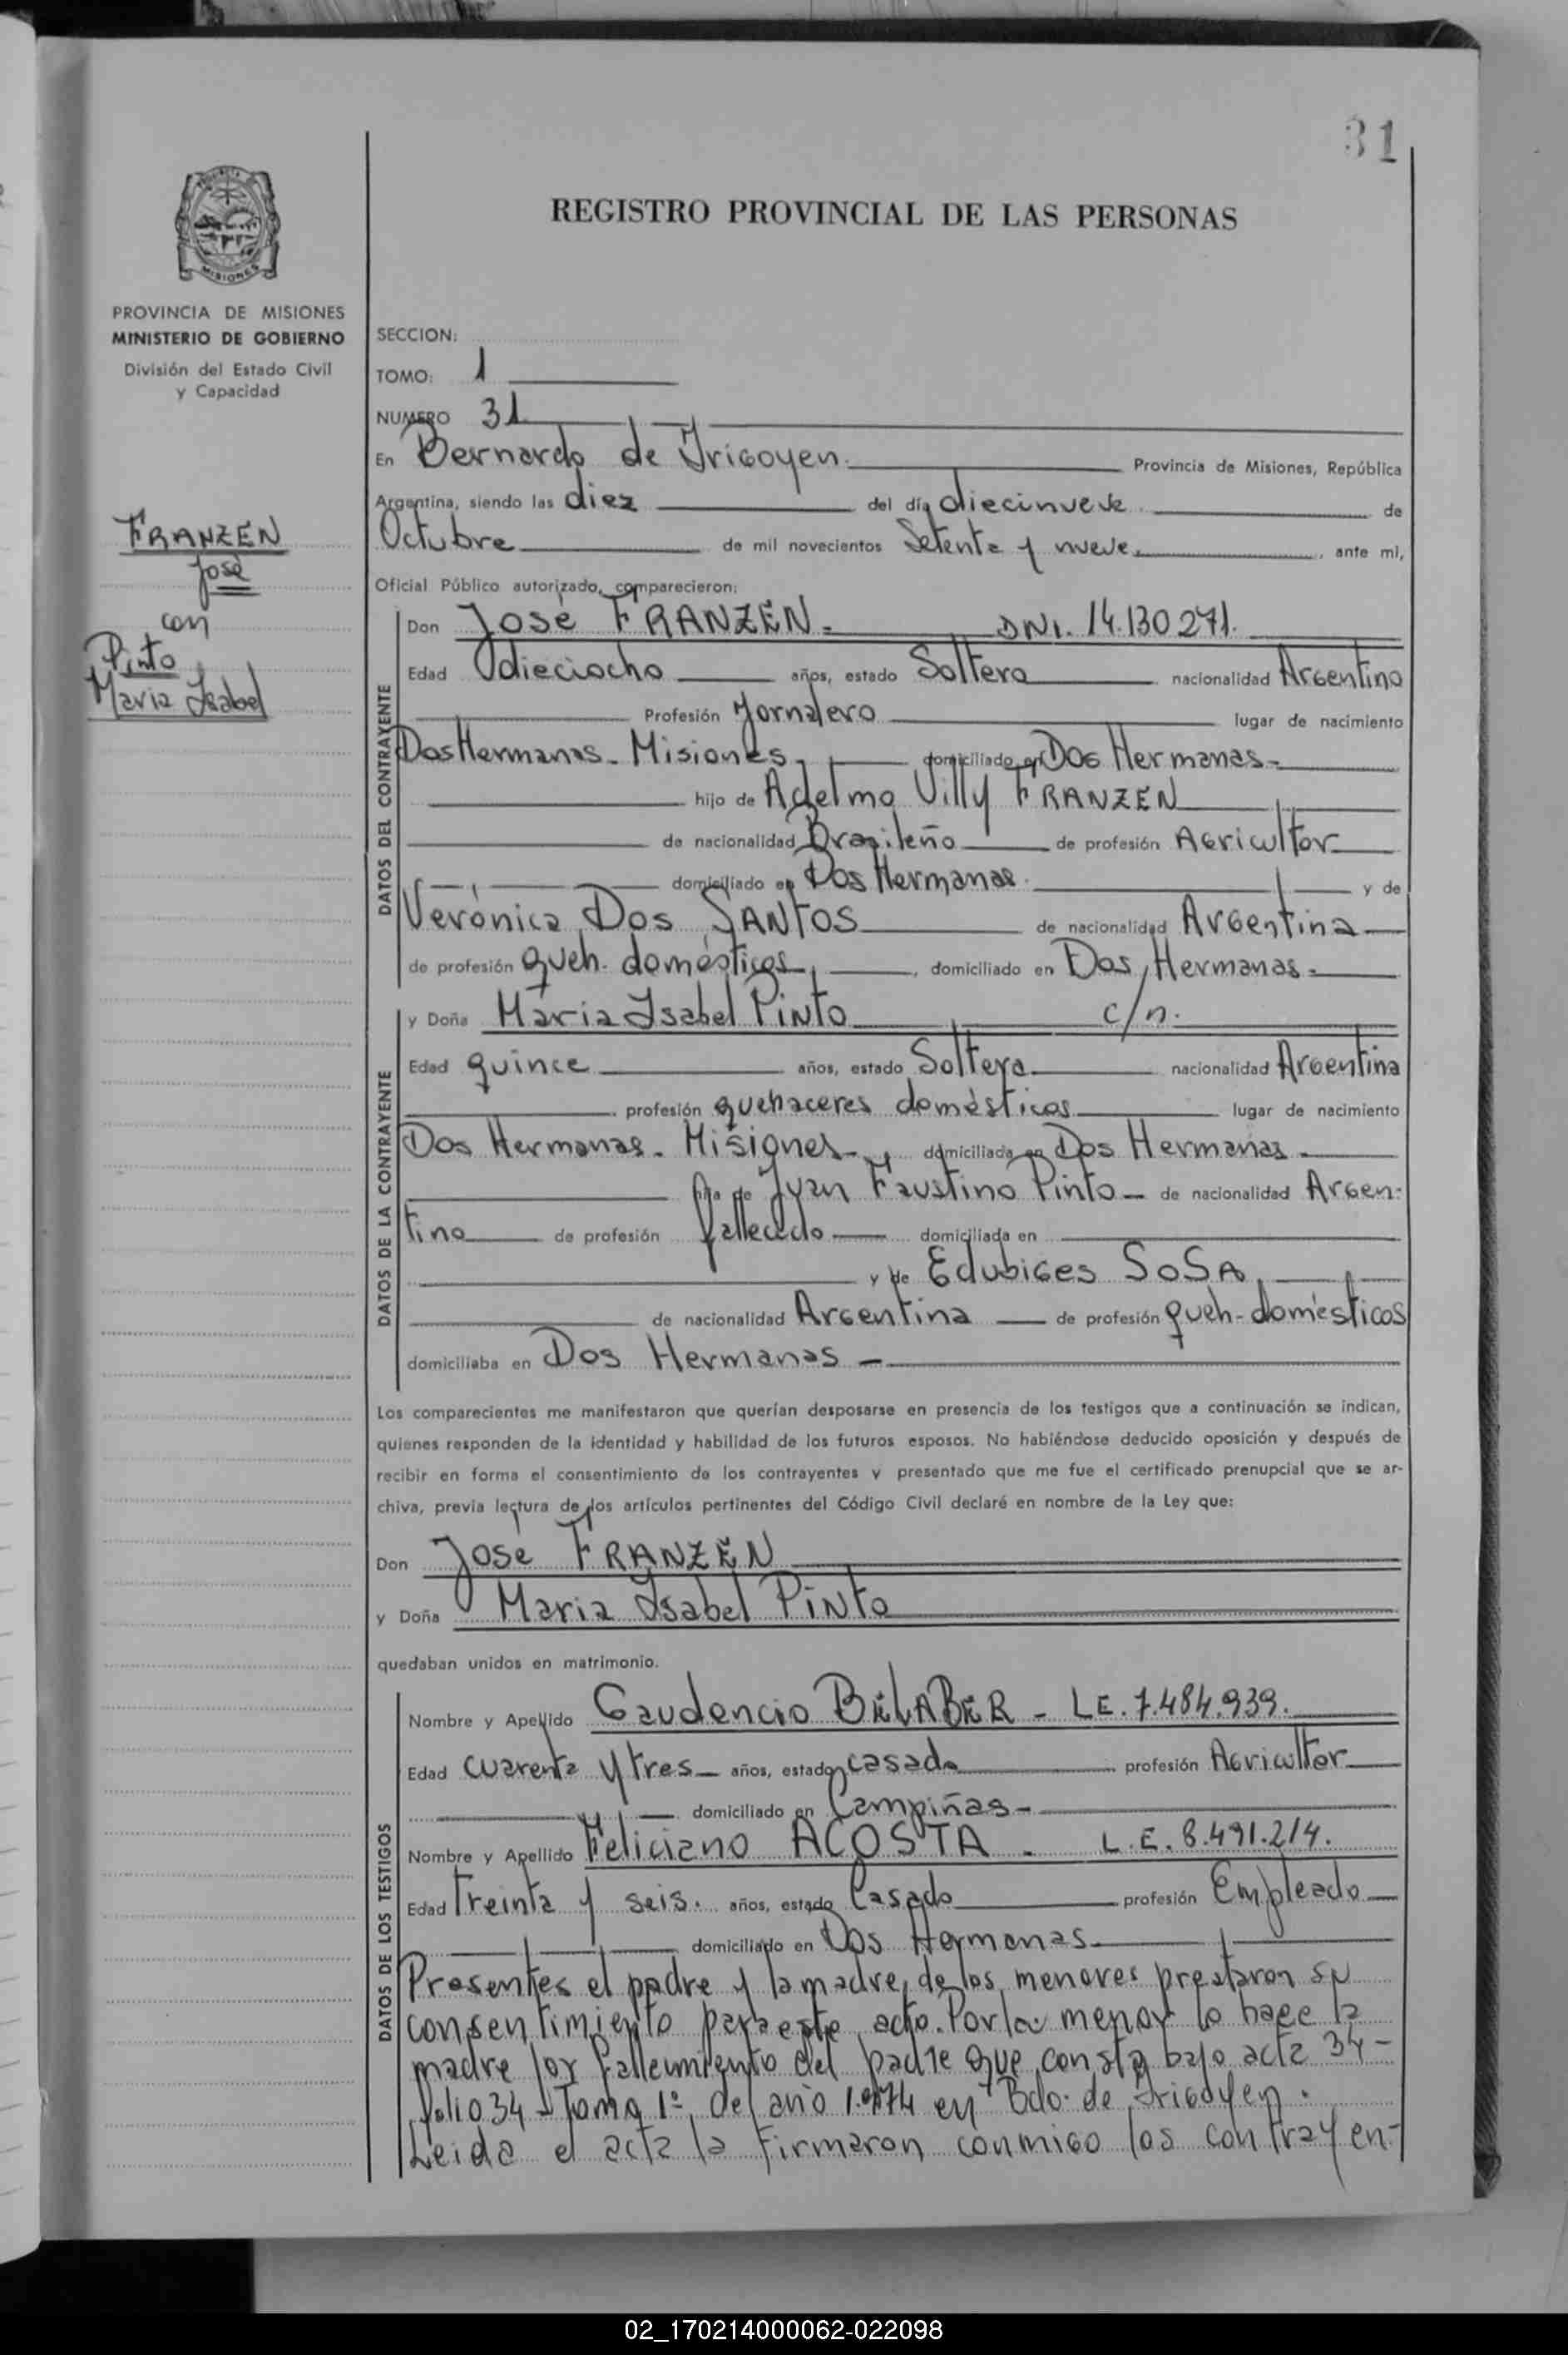 31
REGISTRO PROVINCIAL DE LAS PERSONAS
MISIONES
PROVINCIA DE MISIONES
MINISTERIO DE GOBIERNO
División del Estado Civil
y Capacidad
FRANZEN
José
con
Pinto
Maria Isabel
SECCION:
TOMO: 1
NUMERO 31
En Bernardo de Irigoyen. Provincia de Misiones, República
Argentina, siendo las diez del día diecinueve de
Octubre de mil novecientos Setenta y nueve, ante mí,
Oficial Público autorizado, comparecieron:
DATOS DEL CONTRAYENTE
Don José FRANZEN. DNI. 14.130.271.
Edad dieciocho años, estado Soltero nacionalidad Argentino
Profesión Jornalero lugar de nacimiento
Dos Hermanas - Misiones, domiciliado en Dos Hermanas-
hijo de Adelmo Villy FRANZEN
de nacionalidad Brasileño de profesión Agricultor
domiciliado en Dos Hermanas. y de
Verónica Dos SANTOS de nacionalidad Argentina
de profesión queh. domésticos, domiciliado en Dos Hermanas.
DATOS DE LA CONTRAYENTE
y Doña Maria Isabel Pinto c/n.
Edad quince años, estado Soltera nacionalidad Argentina
profesión quehaceres domésticos lugar de nacimiento
Dos Hermanas - Misiones, domiciliada en Dos Hermanas
hija de Juan Faustino Pinto - de nacionalidad Argen-
tino de profesión fallecido domiciliada en
y de Edubiges SOSA,
de nacionalidad Argentina de profesión queh-domésticos
domiciliaba en Dos Hermanas -
Los comparecientes me manifestaron que querían desposarse en presencia de los testigos que a continuación se indican,
quienes responden de la identidad y habilidad de los futuros esposos. No habiéndose deducido oposición y después de
recibir en forma el consentimiento de los contrayentes y presentado que me fue el certificado prenupcial que se ar-
chiva, previa lectura de los artículos pertinentes del Código Civil declaré en nombre de la Ley que:
Don José FRANZEN
y Doña Maria Isabel Pinto
quedaban unidos en matrimonio.
DATOS DE LOS TESTIGOS
Nombre y Apellido Gaudencio BELABER - LE. 7.484.939.
Edad cuarenta y tres años, estado casado profesión Agricultor
domiciliado en Campiñas-
Nombre y Apellido Feliciano ACOSTA. L.E. 8.491.214.
Edad Treinta y seis. años, estado Casado profesión Empleado
domiciliado en Dos Hermanas
Presentes el padre y la madre, de los menores prestaron su
consentimiento para este acto. Por la menor lo hace la
madre por fallecimiento del padre que consta bajo acta 34-
folio 34 - Tomo 1º del año 1.974 en Bdo. de Irigoyen.
Leida el acta la firmaron conmigo los contrayen-
02_170214000062-022098